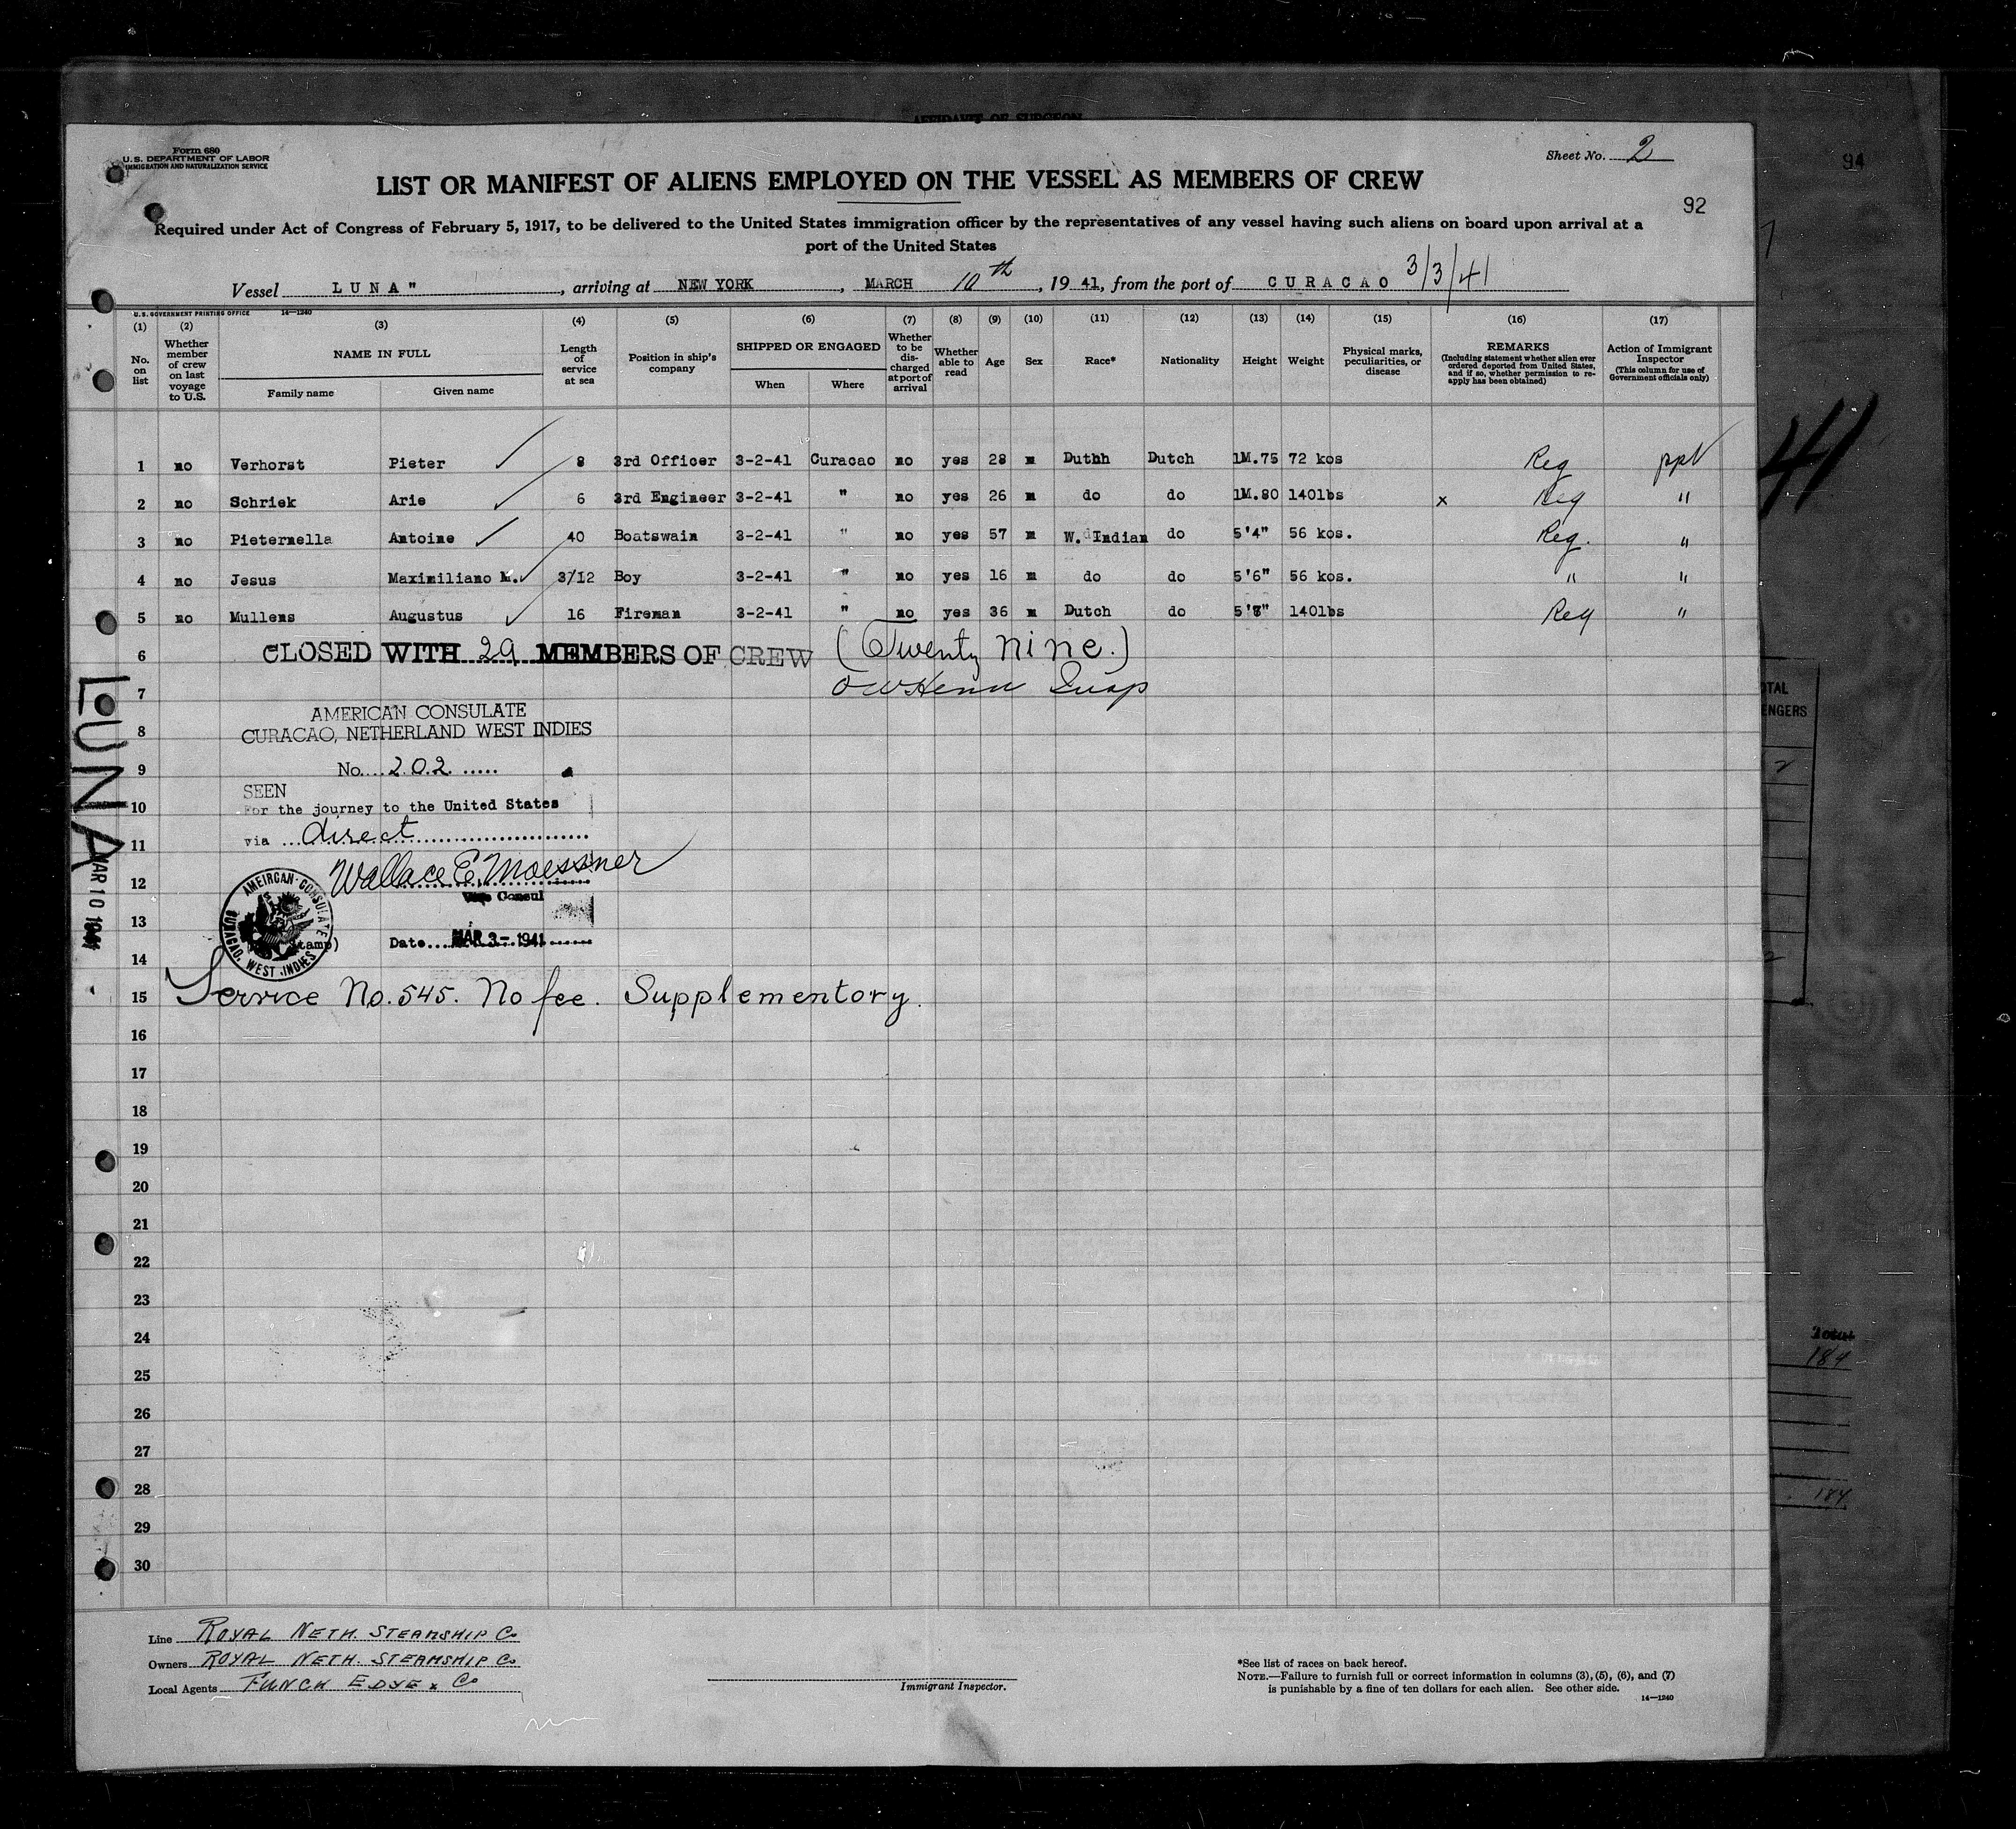 AFFIDAVIT OF SURGEON
Form 680
U.S. DEPARTMENT OF LABOR
IMMIGRATION AND NATURALIZATION SERVICE
Sheet No. 2
94
LIST OR MANIFEST OF ALIENS EMPLOYED ON THE VESSEL AS MEMBERS OF CREW
92
Required under Act of Congress of February 5, 1917, to be delivered to the United States immigration officer by the representatives of any vessel having such aliens on board upon arrival at a
port of the United States
Vessel LUNA", arriving at NEW YORK, MARCH 10th, 1941, from the port of CURACAO 3/3/41
U.S. GOVERNMENT PRINTING OFFICE 14—1240
(1) No. on list
(2) Whether member of crew on last voyage to U.S.
(3) NAME IN FULL
Family name Given name
(4) Length of service at sea
(5) Position in ship's company
(6) SHIPPED OR ENGAGED
When Where
(7) Whether to be discharged at port of arrival
(8) Whether able to read
(9) Age
(10) Sex
(11) Race*
(12) Nationality
(13) Height
(14) Weight
(15) Physical marks, peculiarities, or disease
(16) REMARKS (Including statement whether alien ever ordered deported from United States, and if so, whether permission to reapply has been obtained)
(17) Action of Immigrant Inspector (This column for use of Government officials only)
1 no Verhorst Pieter 8 3rd Officer 3-2-41 Curacao no yes 28 m Duthh Dutch 1M.75 72 kos Reg ppt
2 no Schriek Arie 6 3rd Engineer 3-2-41 " no yes 26 m do do 1M.80 140lbs x Reg "
3 no Pieternella Antoine 40 Boatswain 3-2-41 " no yes 57 m W. Indian do 5'4" 56 kos. Reg. "
4 no Jesus Maximiliano M. 3/12 Boy 3-2-41 " no yes 16 m do do 5'6" 56 kos. " "
5 no Mullens Augustus 16 Fireman 3-2-41 " no yes 36 m Dutch do 5'8" 140lbs Reg "
6 CLOSED WITH 29 MEMBERS OF CREW (Twenty nine.)
7
AMERICAN CONSULATE
8 CURACAO, NETHERLAND WEST INDIES
9 No. 202
SEEN
10 For the journey to the United States
11 via direct
12 Wallace E. Moessner
Vice Consul
AMEIRCAN CONSULATE CURACAO, WEST INDIES
13 Date MAR 3- 1941
14
15 Service No. 545. No fee. Supplementory.
16
17
18
19
20
21
22
23
24
25
26
27
28
29
30
LUNA
MAR 10 1941
41
Total
184
184
Line ROYAL NETH. STEAMSHIP Co
Owners ROYAL NETH. STEAMSHIP Co
Local Agents FUNCH EDYE & Co
Immigrant Inspector.
*See list of races on back hereof.
NOTE.—Failure to furnish full or correct information in columns (3), (5), (6), and (7)
is punishable by a fine of ten dollars for each alien. See other side.
14—1240